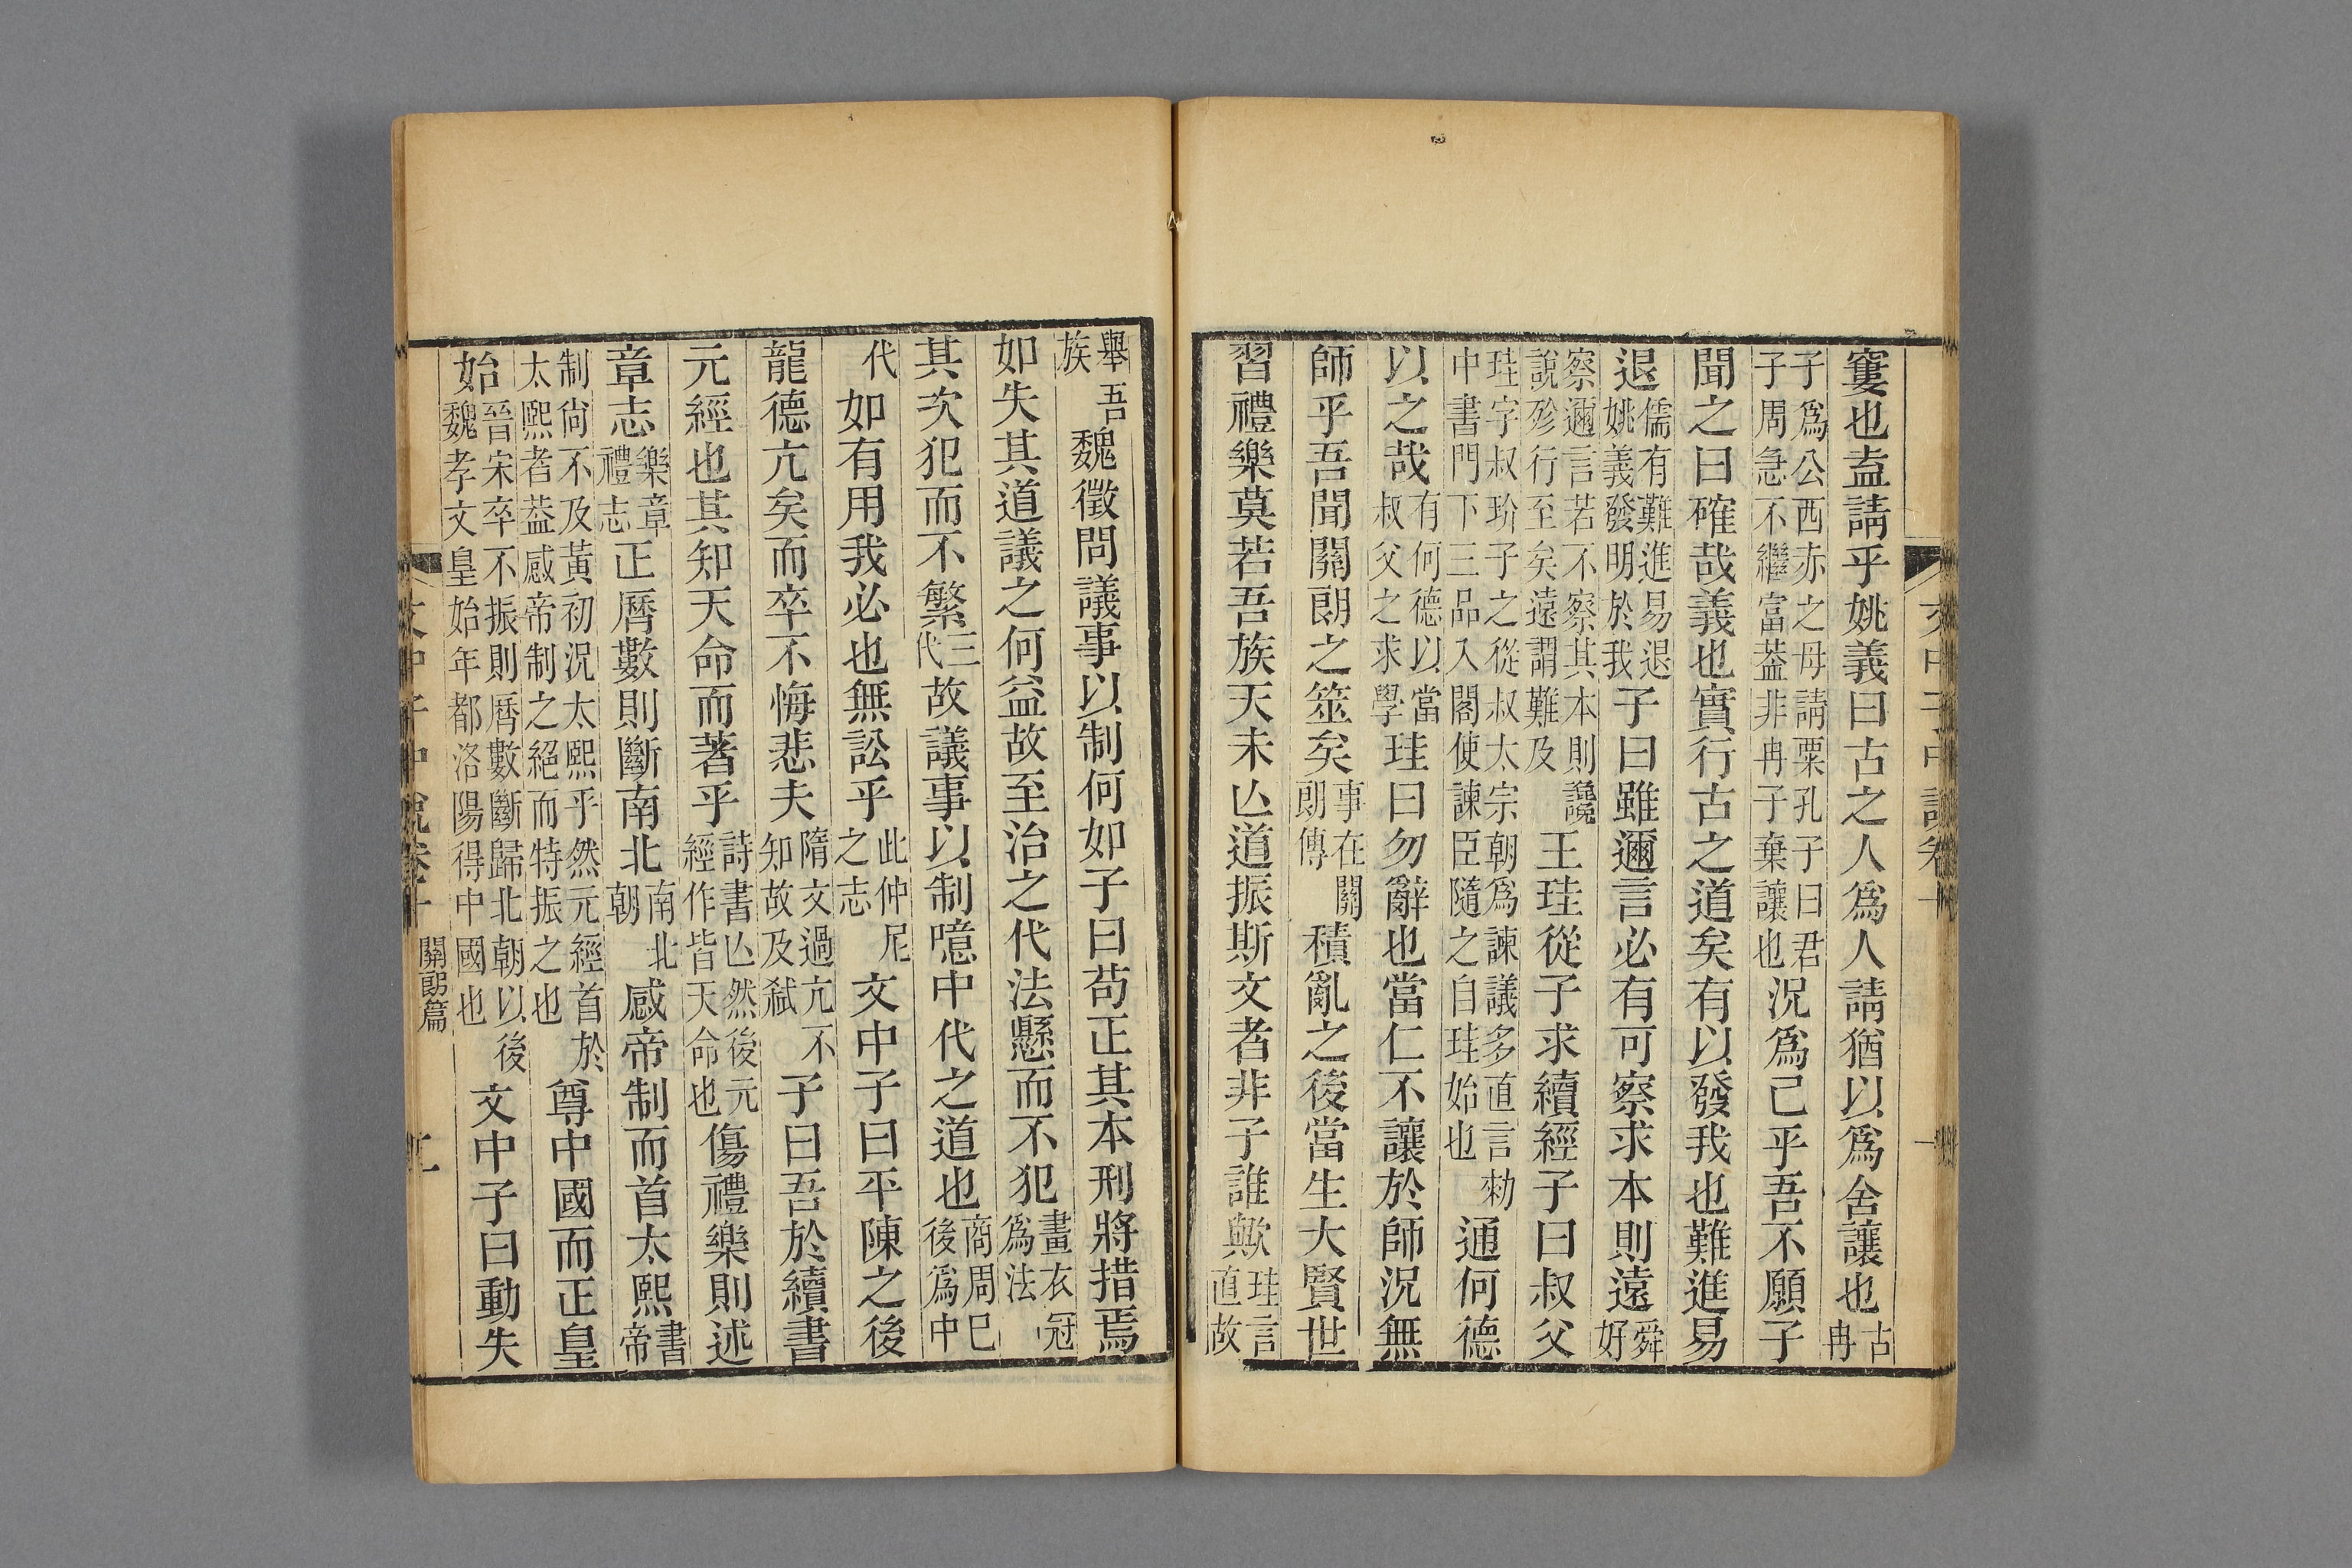 文中子中說卷十
窶也盍請乎姚義曰古之人爲人請猶以爲舍讓也古冉
子爲公西赤之母請粟孔子曰君子周急不繼富葢非冉子棄讓也況爲己乎吾不願子
聞之曰確哉義也實行古之道矣有以發我也難進易
退儒有難進易退姚義發明於我子曰雖邇言必有可察求本則遠舜好
察邇言若不察其本則讒說殄行至矣遠謂難及王珪從子求續經子曰叔父
珪字叔玠子之從叔太宗朝爲諫議多直言勑中書門下三品入閣使諫臣隨之自珪始也通何德
以之哉有何德以當叔父之求學珪曰勿辭也當仁不讓於師況無
師乎吾聞關朗之筮矣事在關朗傳積亂之後當生大賢世
習禮樂莫若吾族天未亾道振斯文者非子誰歟珪言直故
舉吾族魏徵問議事以制何如子曰苟正其本刑將措焉
如失其道議之何益故至治之代法懸而不犯畫衣冠爲法
其次犯而不繁三代故議事以制噫中代之道也商周已後爲中
代如有用我必也無訟乎此仲尼之志文中子曰平陳之後
龍德亢矣而卒不悔悲夫隋文過亢不知故及弑子曰吾於續書
元經也其知天命而著乎詩書亾然後元經作皆天命也傷禮樂則述
章志樂章禮志正曆數則斷南北南北朝感帝制而首太熙書帝
制尙不及黃初況太熙乎然元經首於太熙者葢感帝制之絕而特振之也尊中國而正皇
始晉宋卒不振則曆數斷歸北朝以後魏孝文皇始年都洛陽得中國也文中子曰動失
文中子中說卷十 關朗篇